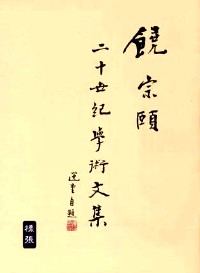 饒宗頤
二十世紀學術文集
選堂自題
樣張